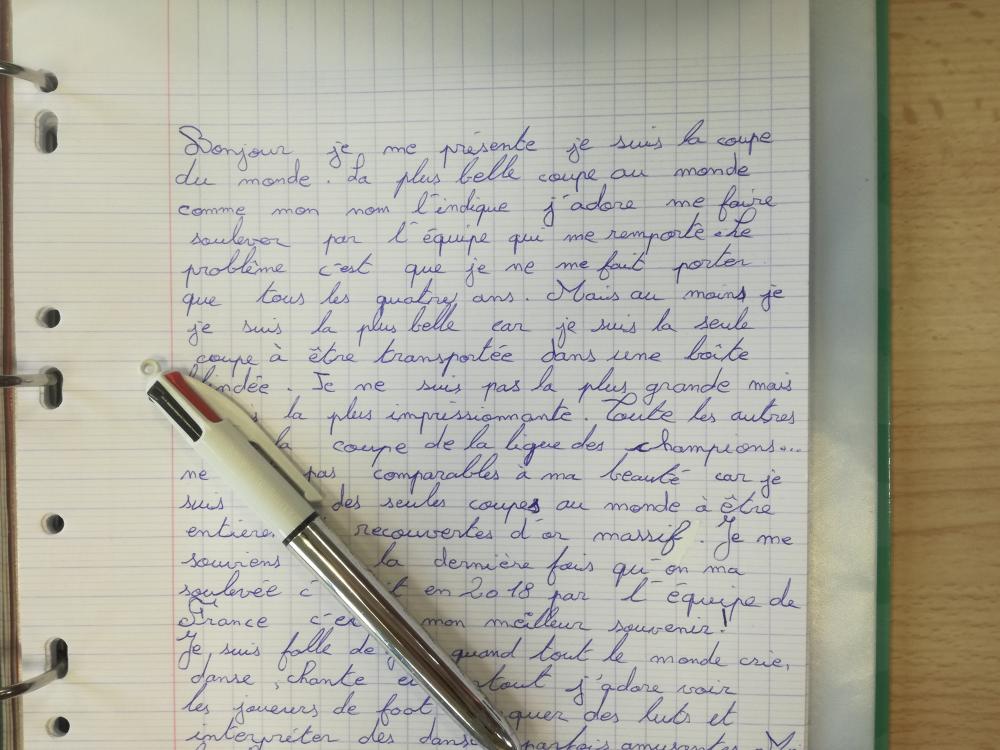 Bonjour je me présente je suis la coupe
du monde. La plus belle coupe au monde
comme mon nom l'indique j'adore me faire
soulever par l'équipe qui me remporte. Le
problème c'est que je ne me fait porter
que tous les quatres ans. Mais au moins je
je suis la plus belle car je suis la seule
coupe à être transportée dans une boîte
blindée. Je ne suis pas la plus grande mais
la plus impressionnante. Toute les autres
coupe de la ligue des champions...
ne pas comparables à ma beauté car je
suis des seules coupes au monde à être
recouvertes d'or massif. Je me
souviens la dernière fois qu'on ma
soulevée en 2018 par l'équipe de
France mon meilleur souvenir!
Je suis folle de quand tout le monde crie,
danse, chante j'adore voir
les joueurs de foot des buts et
interpréter des parfois amusantes.